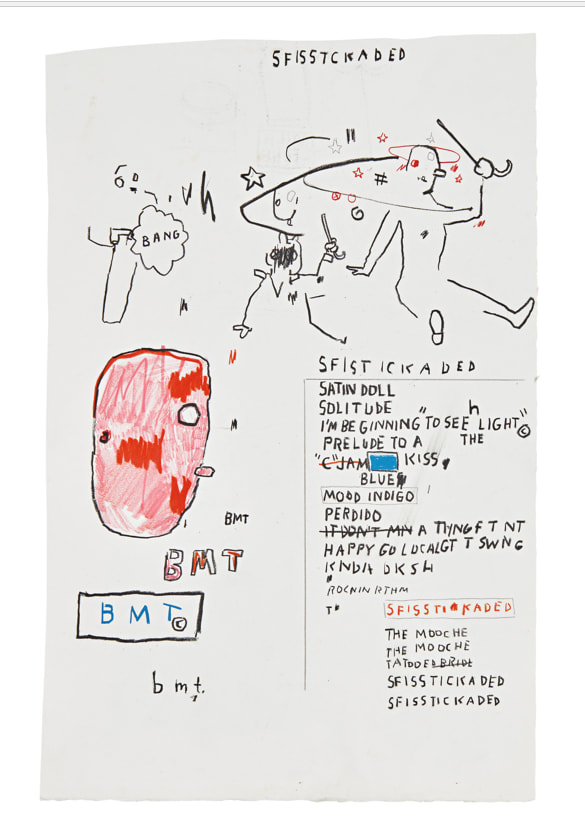 SFISSTCKADED
vh
BANG
SFISTICKADED
SATIN DOLL
SOLITUDE " h "
I'M BE GINNING TO SEE LIGHT ©
PRELUDE TO A THE
"C"JAM KISS
BLUE
MOOD INDIGO
PERDIDO
IT DON'T MN A THNG F T NT
HAPPY GO LOCAL GT T SWNG
ROCNIN RTHM
T"
SFISSTICKADED
THE MOOCHE
THE MOOCHE
TATOOED BRIDE
SFISSTICKADED
SFISSTICKADED
BMT
BMT
BMT ©
bmt.